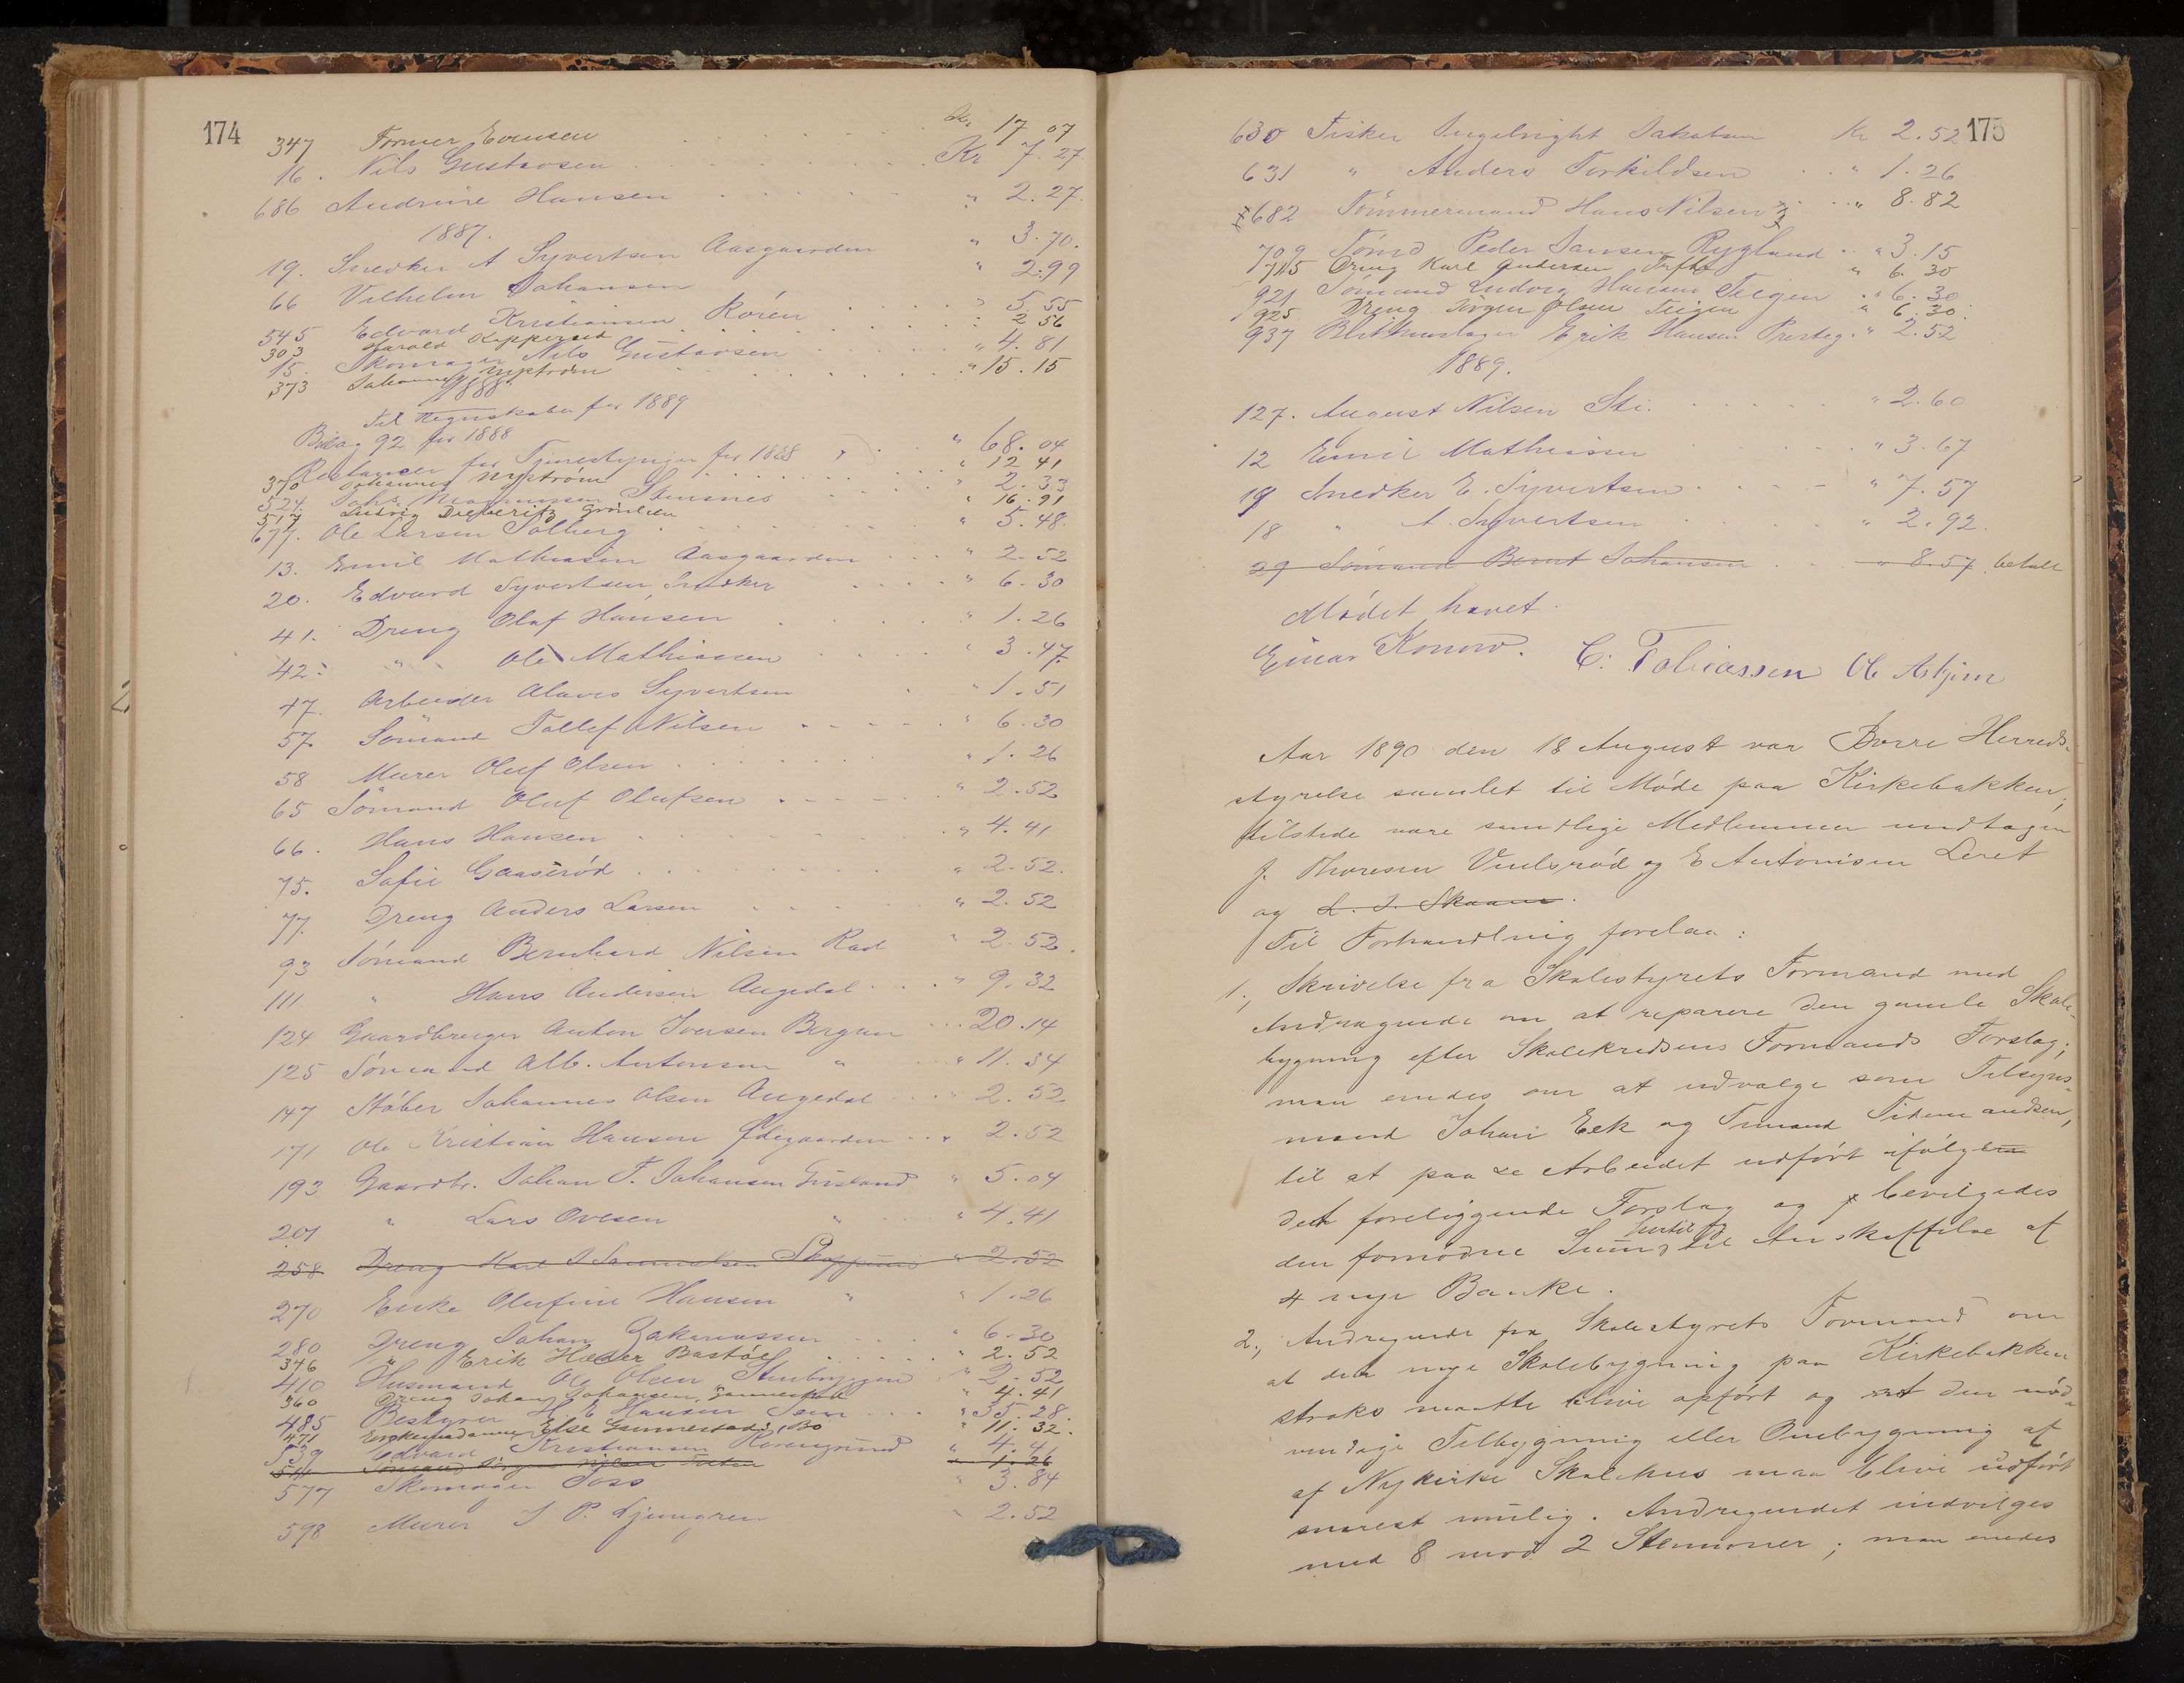 174
347 Former Evensen Kr 17 07
16. Nils Gustavsen Kr 7.27
686 Andrine Hansen " 2.27.
1887.
19. Snedker A Syvertsen Aasgaarden " 3.70.
66 Vilhelm Johansen " 2.99
545 Edvard Kristiansen Røren " 5.55
303 Harald Kopperud " 2 56
15. Skomager Nils Gustavsen " 4.81
373 Johannes Nystrøm " 15.15
1888.
til Regnskabet for 1889
Bilag 92 for 1888 " 68.04
Restancer for 1888
370 Johannes Nystrøm " 12 41
524. Johs. Magnussen Stensnes " 2.33
517 Ludvig Grønlien " 16.91
677. Ole Larsen Solberg " 5.48.
13. Emil Mathiasen Aasgaarden " 2.52
20. Edvard Syvertsen Snedker " 6.30
41. Dreng Olaf Hansen " 1.26
42. " Ole Mathiassen " 3.47.
47. Arbeider Syvertsen " 1.51
57. Sømand Tollef Nilsen " 6.30
58 Murer Oluf Olsen " 1.26
65 Sømand Oluf Olufsen " 2.52
66. Hans Hansen " 4.41
75. Sofie Gaaserød " 2.52.
77. Dreng Anders Larsen " 2.52
93 Sømand Bernhard Nilsen Rad " 2.52.
111 " Hans Andersen Augedal " 9.32
124 Gaardbruger Anton Iversen Bergan 20.14
125 Sømand Alb. Antonsen " " 11.34
147 Støber Johannes Olsen Augedal " 2.52
171 Ole Kristian Hansen Ødegaarden " 2.52
193 Gaardbr. Johan T. Johansen " 5.04
201 " Lars Ovesen " " 4.41
258 Dreng Karl J Samuelsen Skoppum " 2.52
270 Enke Olufine Hansen " " 1.26
280 Dreng Johan Zakariassen " 6.30
346 " Erik Bastøe " 2.52
410 Husmand Ole Olsen Stenbryggen " 2.52
360 Dreng Johan Johansen " 4.41
485 Bestyrer H. E Hansen Sem " 35.28.
471 Enkemadame Else Gannestad, Bø " 11.32.
539 Edvard Kristiansen Rørengrund " 4.41
Sømand Jørgen Nilsen " 1.26
577 Skomager Foss " 3.84
598 Murer J P. Ljungren " 2.52
175
630 Fisker Ingebright Jakobsen Kr 2.52
631 " Anders Torkildsen " 1.26
682 Tømmermand Hans Nilsen " 8.82
709 Tømd Peder Jansen Rygland " 3.15
715 Dreng Karl Andersen Tufte " 6.30
921 Sømand Ludvig Hansen Teigen " 6.30
925 Dreng Jørgen Olsen Teigen " 6.30.
937 Erik Hansen Presteg. " 2.52
1889.
127. August Nilsen Sti. " 2.60
12 Emil Mathiassen " 3.67
19 Snedker E. Syvertsen " 7.57
18 " A. Syvertsen " 2.92.
29 Sømand Bernt Johansen " 8.57 betalt
Mødet hævet.
Einar Konow. C. Tobiassen
Aar 1890 den 18 August var Borre Herreds-
styrelse samlet til Møde paa Kirkebakken;
tilstede vare samtlige Medlemmer undtagen
J. Thoresen Vuelsrød og E Antonisen Leret
og L. J. Skaane.
Til Forhandling forelaa:
1., Skrivelse fra Skolestyrets Formand med
Andragende om at reparere den gamle Skole-
bygning efter Skolekredsens Formands Forslag;
man enedes om at udvælge som Tilsyns-
mænd Johan Eek og Tidemandsen,
til at paase Arbeidet udført ifølge
det foreliggende Forslag og bevilgedes
den fornødne Sum hertil til Anskaffelse af
4 nye Bænke.
2., Andragende fra Skolestyrets Formand om
at den nye Skolebygning paa Kirkebakken
straks maatte blive opført og at den nød-
vendige Tilbygning eller Ombygning af
af Nykirke Skolehus maa blive udført
snarest mulig. Andragendet indvilges
med 8 mod 2 Stemmer; man enedes